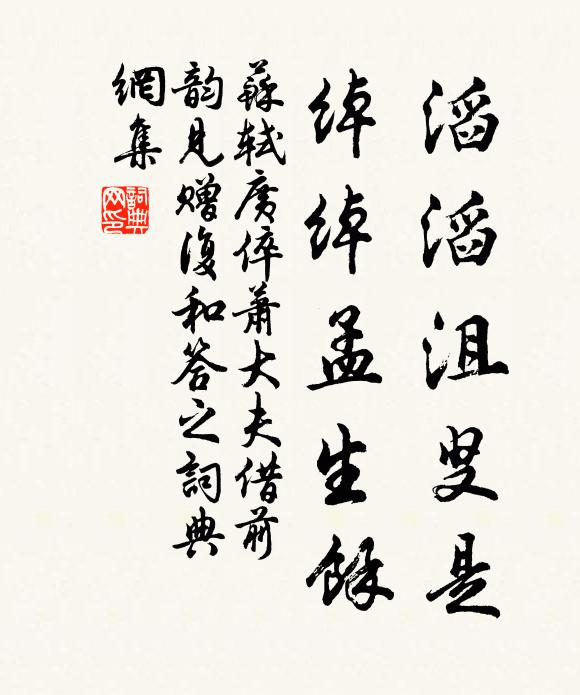 滔滔沮叟是
綽綽孟生餘
蘇軾廣倅蕭大夫借前
韵見贈復和答之詞典
網集
詞典
网印